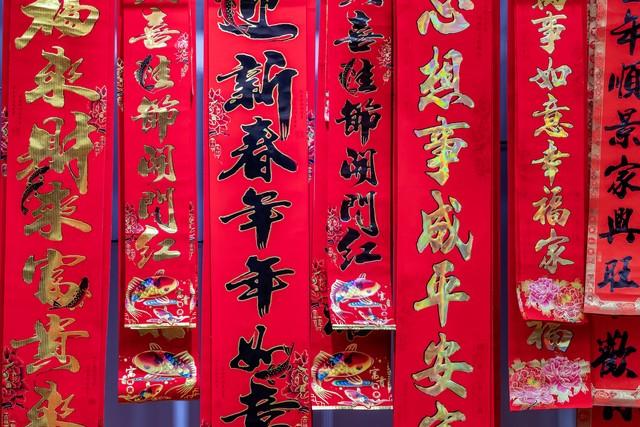 福来財来富貴来
喜佳節開門紅
迎新春年年如意
喜佳節開門紅
心想事成平安
事如意幸福家
年順景家興旺
歡